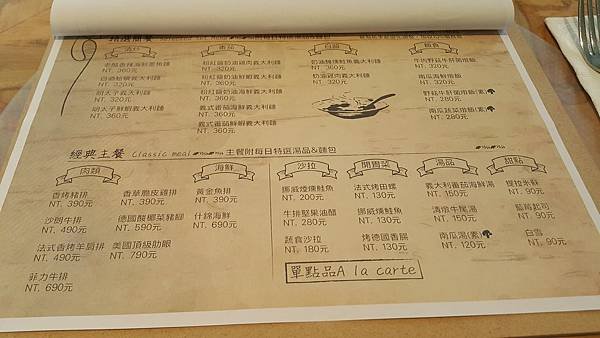 清炒
番茄
白醬
飯食
老醋香辣海鮮墨魚麵
NT. 360元
NT. 320元
明太子義大利麵
NT. 320元
明太子鮮蝦義大利麵
NT. 360元
粉紅醬奶油雞肉義大利麵
NT. 320元
粉紅醬奶油海鮮義大利麵
NT. 360元
義式番茄海鮮義大利麵
NT. 360元
義式番茄鮮蝦義大利麵
NT. 360元
奶油燻鮭魚義大利麵
NT. 360元
奶油雞肉義大利麵
NT. 320元
牛肉野菇牛肝菌燉飯
NT. 320元
南瓜海鮮燉飯
NT. 320元
野菇牛肝菌燉飯(素)
NT. 280元
南瓜蔬菜燉飯(素)
NT. 280元
經典主餐 Classic meal 主餐附每日特選湯品&麵包
肉類
香烤豬排
NT. 390元
沙朗牛排
NT. 490元
法式香烤羊肩排
NT. 490元
菲力牛排
NT. 690元
香草脆皮雞排
NT. 390元
德國酸椰菜豬腳
NT. 590元
美國頂級肋眼
NT. 790元
海鮮
黃金魚排
NT. 390元
什錦海鮮
NT. 690元
沙拉
挪威煙燻鮭魚
NT. 200元
牛排堅果油醋
NT. 280元
蔬食沙拉
NT. 180元
開胃菜
法式烤田螺
NT. 130元
挪威燻鮭魚
NT. 130元
烤德國香腸
NT. 130元
湯品
義大利番茄海鮮湯
NT. 150元
清燉牛尾湯
NT. 150元
南瓜湯(素)
NT. 120元
甜點
提拉米蘇
NT. 90元
藍莓起司
NT. 90元
白雪
NT. 90元
單點品A la carte